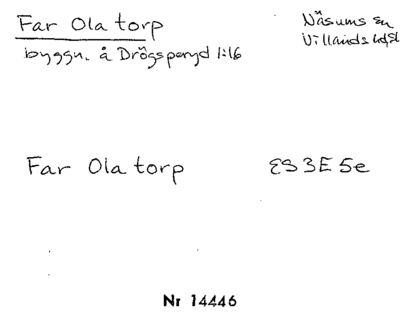 Far Ola torp
Näsums sn
Villands hd, Sk
byggn. å Drögsperyd 1:16
Far Ola torp
ES 3E 5e
Nr 14446